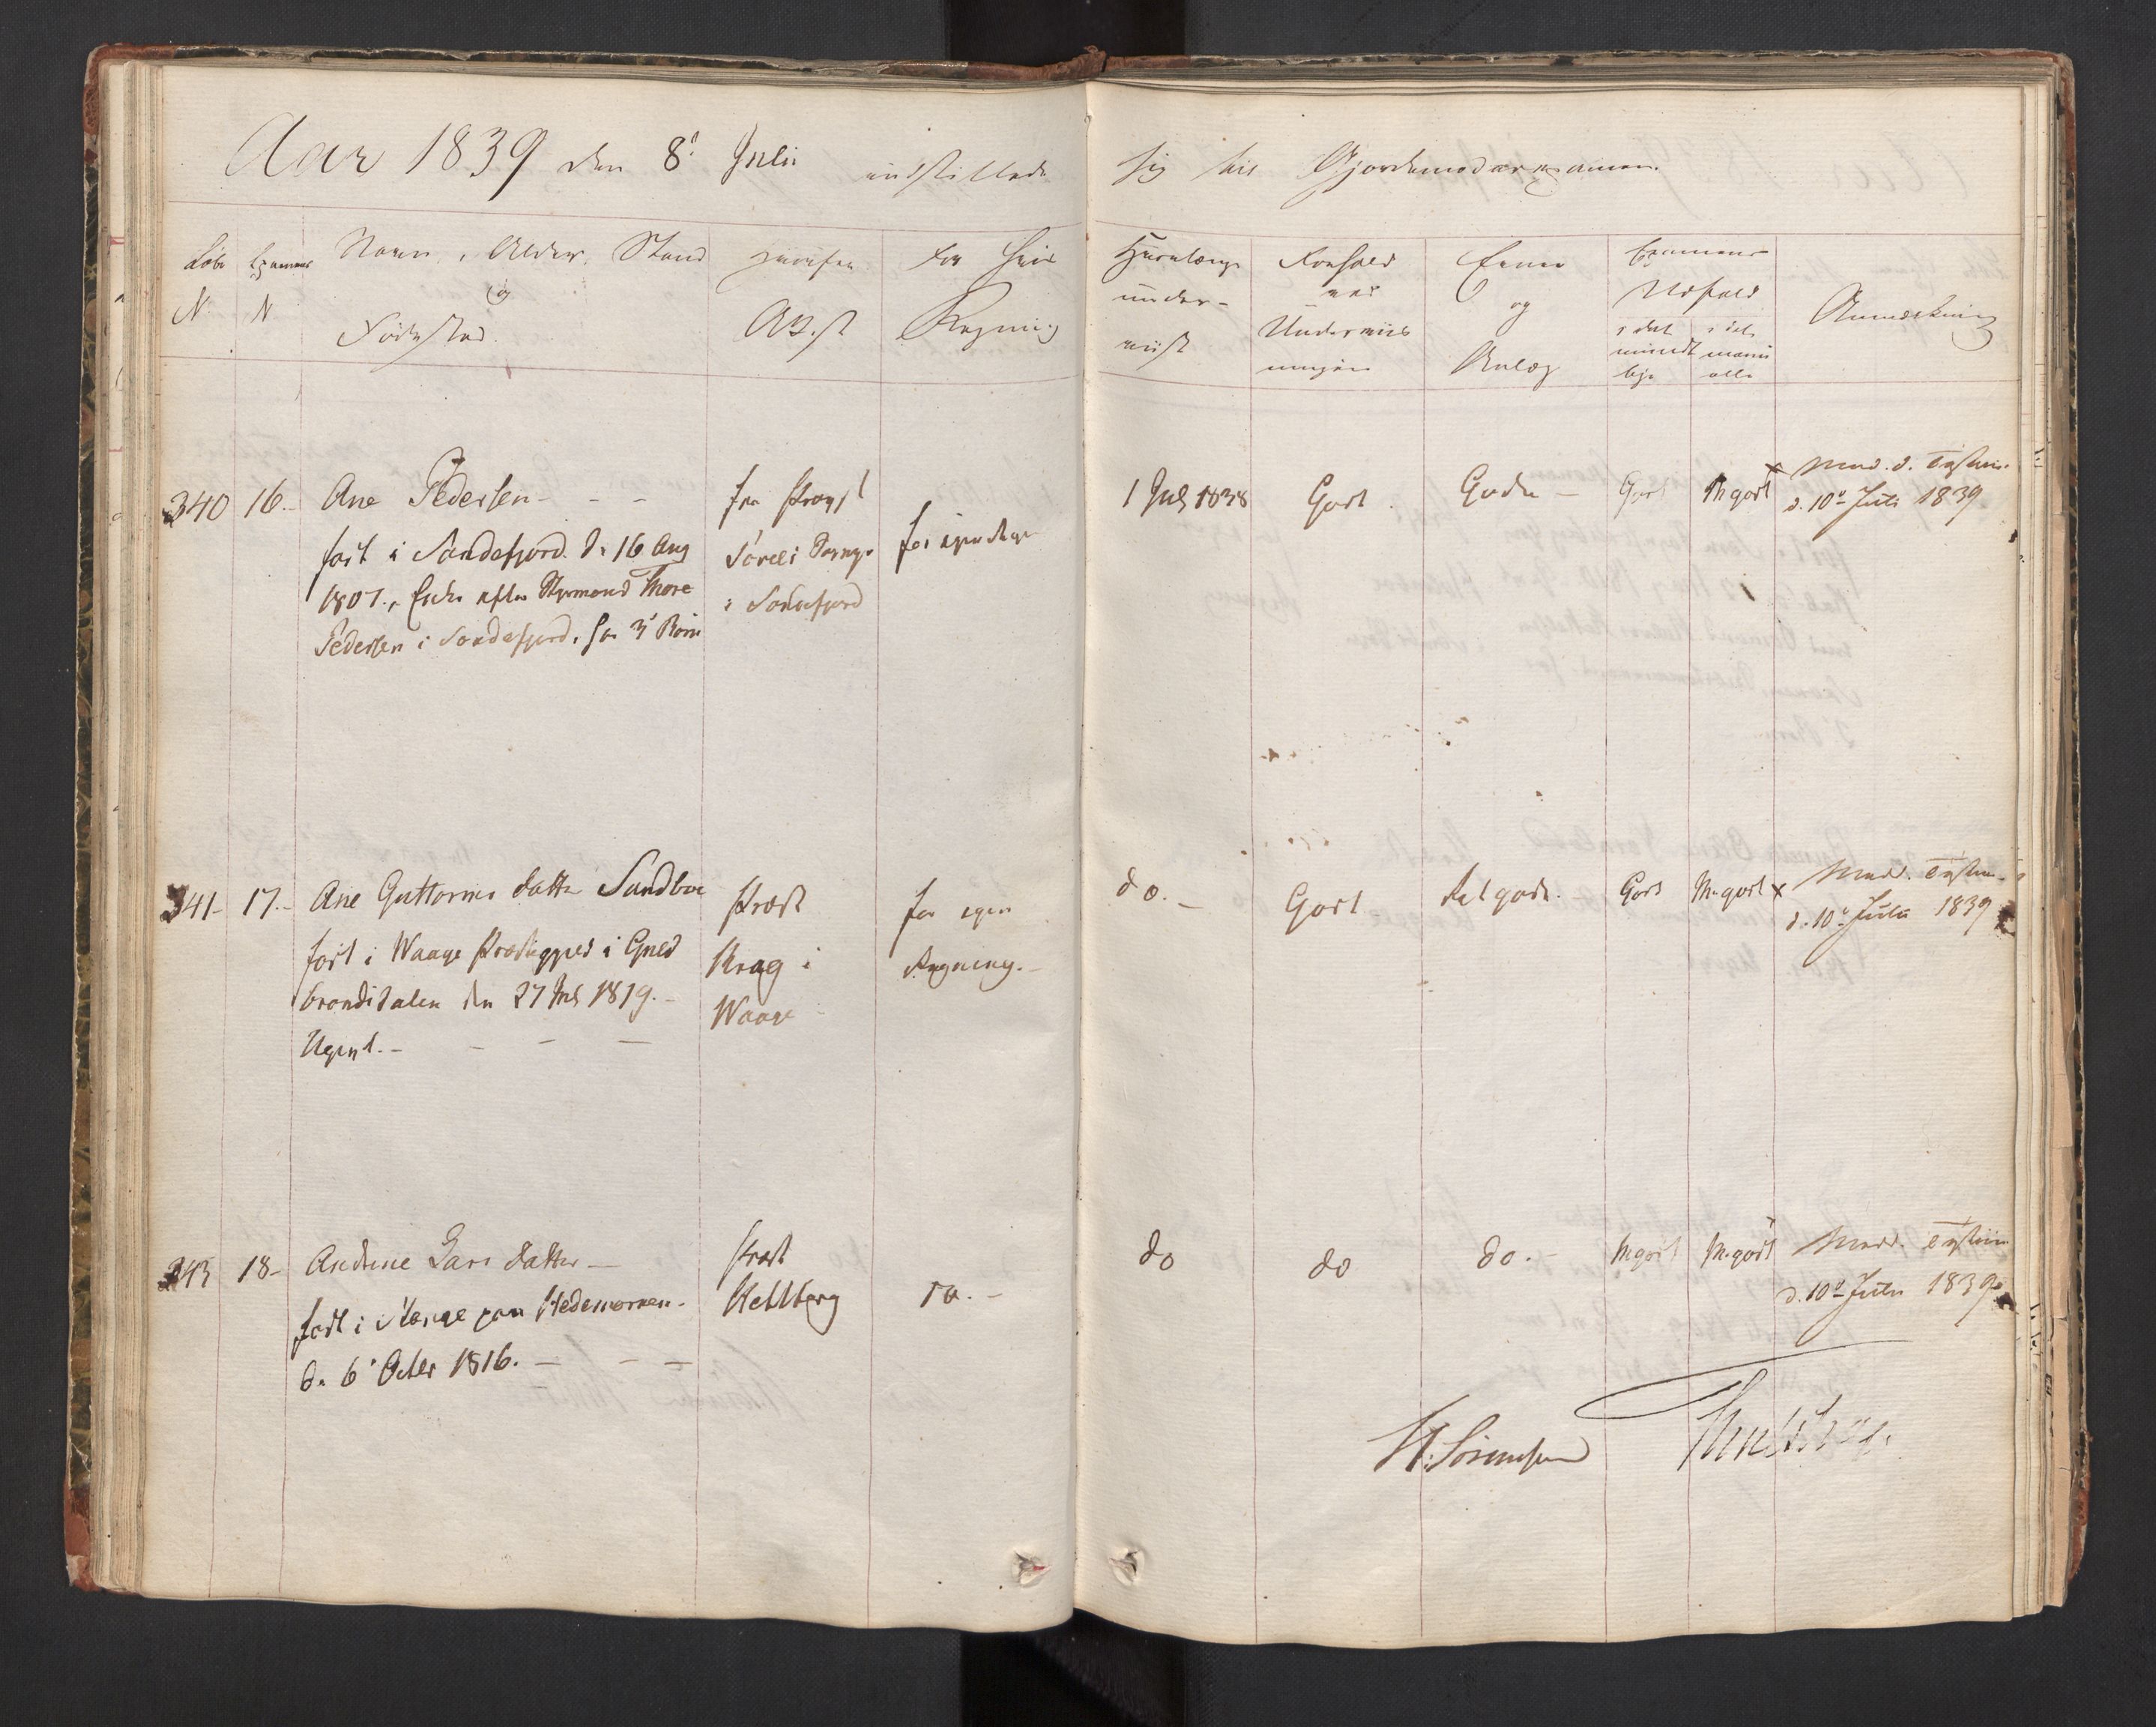 Aar 1839 den 8' Julii indstillede sig til Gjordemoderexamen.
Løbe N
Examens N
Navn, Alder, Stand
og
Fødested
Hvorfra
Attest
For hvis
Regning
Hvorlænge
under-
viist
Forhold
ved
Underviis
ningen
Evner
og
Anlæg
Examens
Udfald
i det
mundt
lige
i det
manu
elle
Anmærkning
340 16.- Ane Pedersen - - -
født i Sandefjord. d. 16 Aug
1807., Enke efter Styrmand Thore
Pedersen i Sandefjord. har 3 Børn
fra Provst
i Sandefjord
for egen
1 Juli 1838
Godt
Gode -
Godt
M godt
x Med. d. Testim.
d. 10de Juli 1839
341- 17.- Ane Guttorms datter Sandboe
født i Waage Præstegjeld i Guld
brandsdalen den 27 Juli 1819.-
Ugivt. - - - -
Præst
Krag i
Waage
for egen
Regning.-
do.-
Godt
Ret gode.
Godt
M. godt x
Medd. Testim.
d. 10de Julii 1839
343 18- Andrine Lars datter -
født i Stange paa Hedemarken.
d. 6' Octbr 1816. - - -
Præst
do. -
do
do
do. -
M godt
M. godt
Medd. Testim
d. 10de Julii 1839
N. Sørenssen